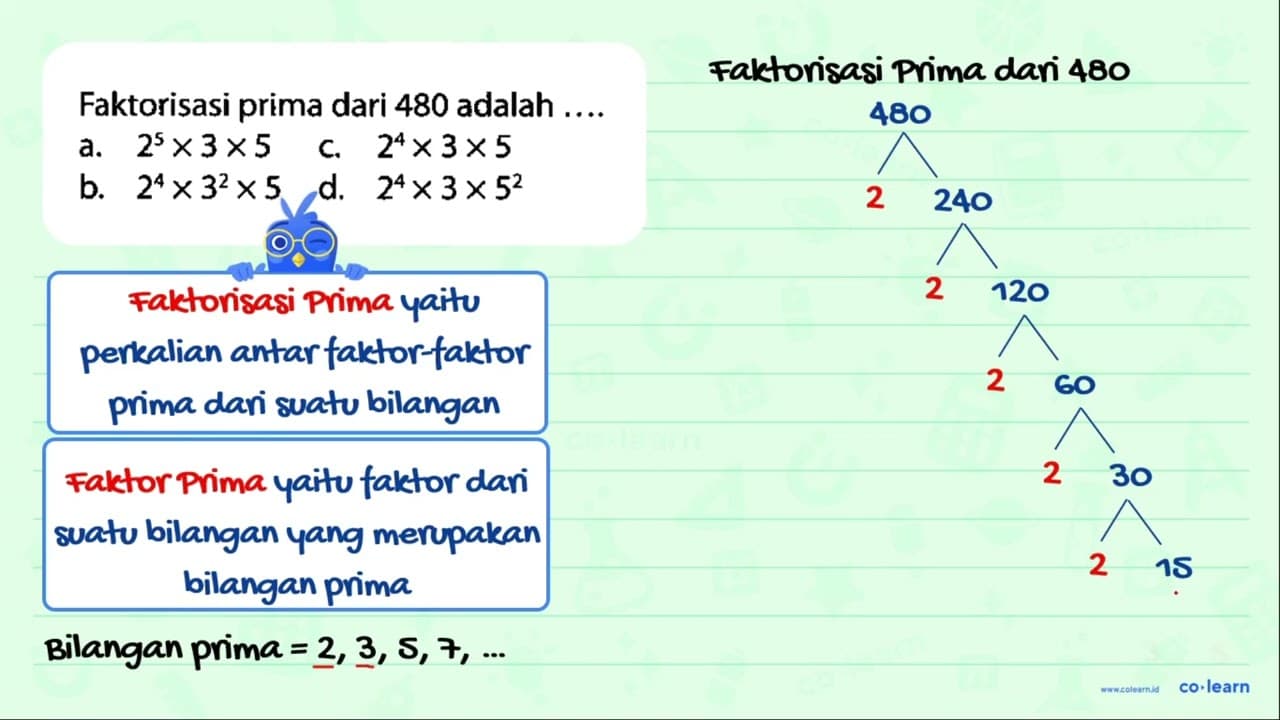 Faktorisasi prima dari 480 adalah ....
a. 2⁵ × 3 × 5 c. 2⁴ × 3 × 5
b. 2⁴ × 3² × 5 d. 2⁴ × 3 × 5²
Faktorisasi Prima yaitu
perkalian antar faktor-faktor
prima dari suatu bilangan
Faktor Prima yaitu faktor dari
suatu bilangan yang merupakan
bilangan prima
Bilangan prima = 2, 3, 5, 7, ...
Faktorisasi Prima dari 480
480
2 240
2 120
2 60
2 30
2 15
co·learn
co·learn
www.colearn.id co·learn